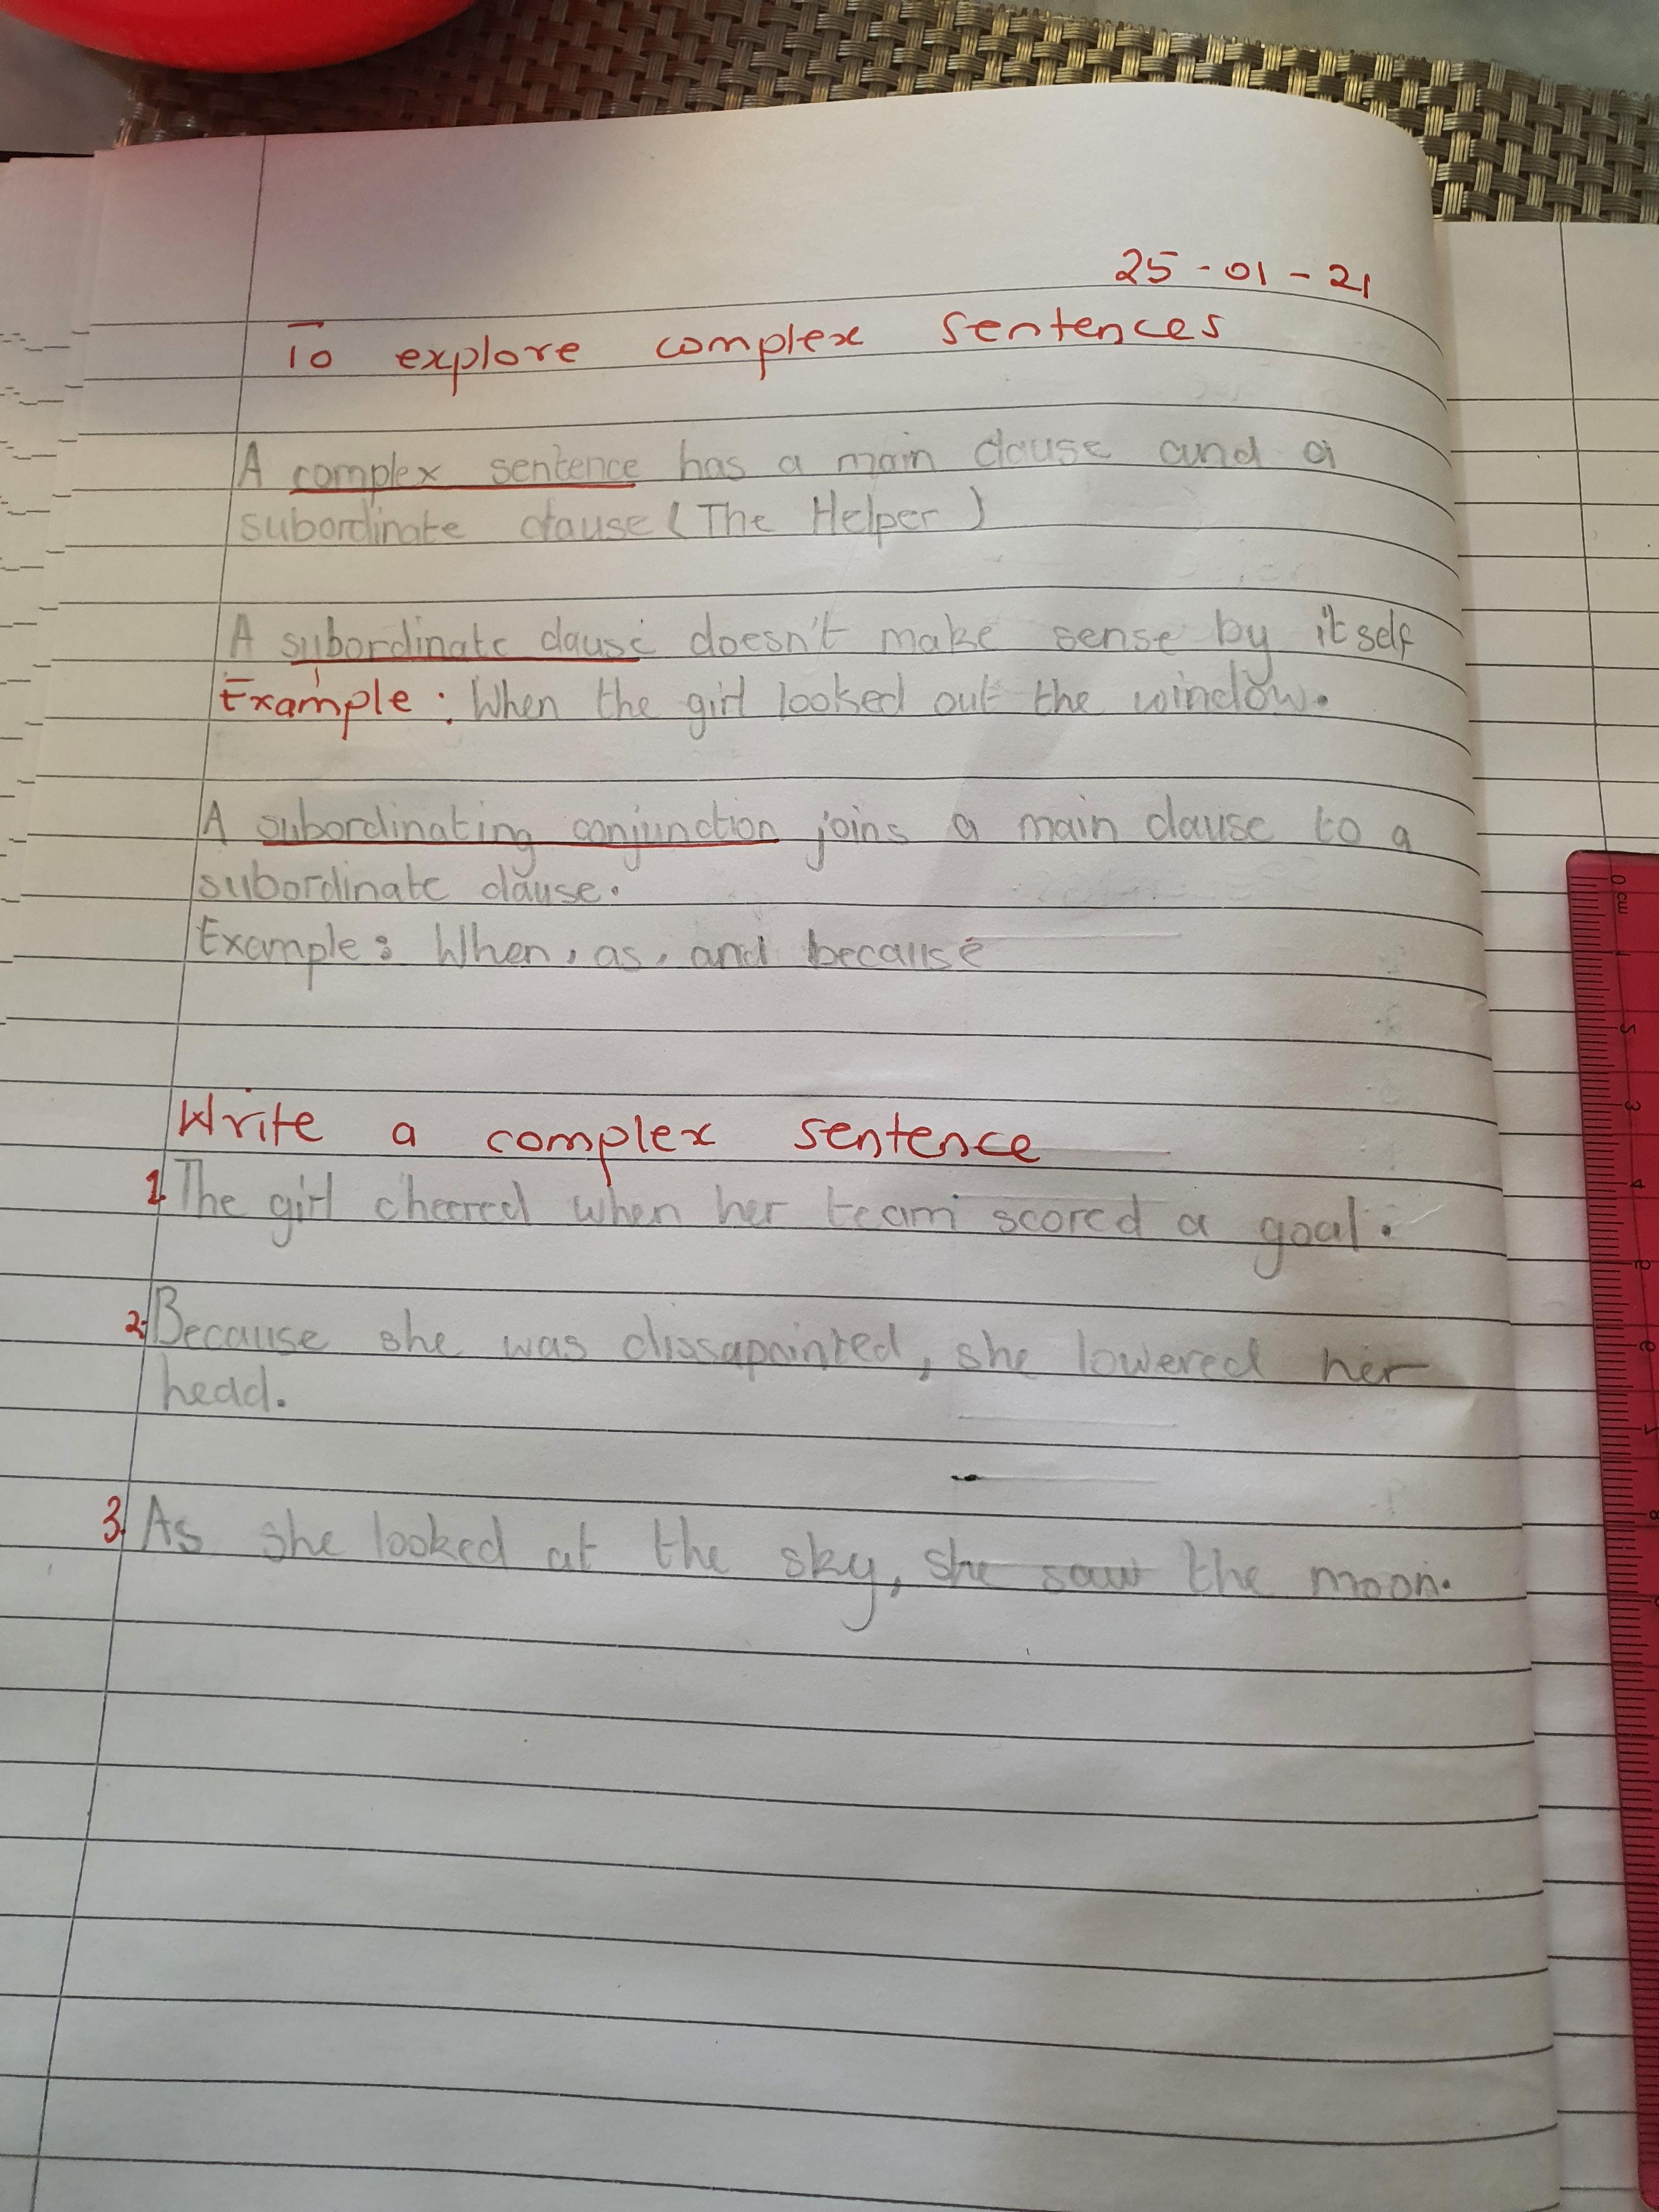 25-01-21
To explore complex sentences
A complex sentence has a main clause and a
subordinate clause (The Helper)
A subordinate clause doesn't make sense by itself
Example: When the girl looked out the window.
A subordinating conjunction joins a main clause to a
subordinate clause.
Example: When, as, and because
Write a complex sentence
1. The girl cheered when her team scored a goal.
2. Because she was dissapointed, she lowered her
head.
3. As she looked at the sky, she saw the moon.
0 cm
1
2
3
4
5
6
7
8